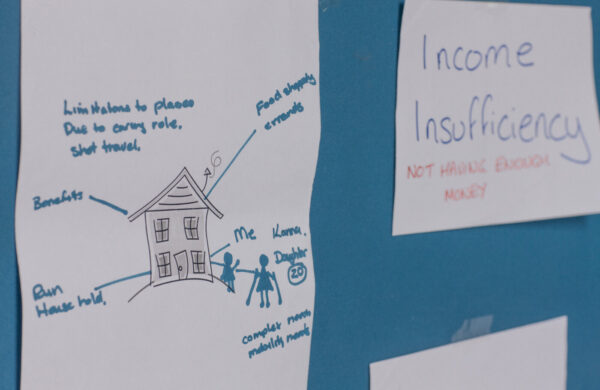 Limitations to places
Due to caring role.
shot travel.
Food shopping
errands
Benefits
Me
Karina.
Daughter
20
Run
House hold.
complex
mobility needs
Income
Insufficiency
NOT HAVING ENOUGH
MONEY